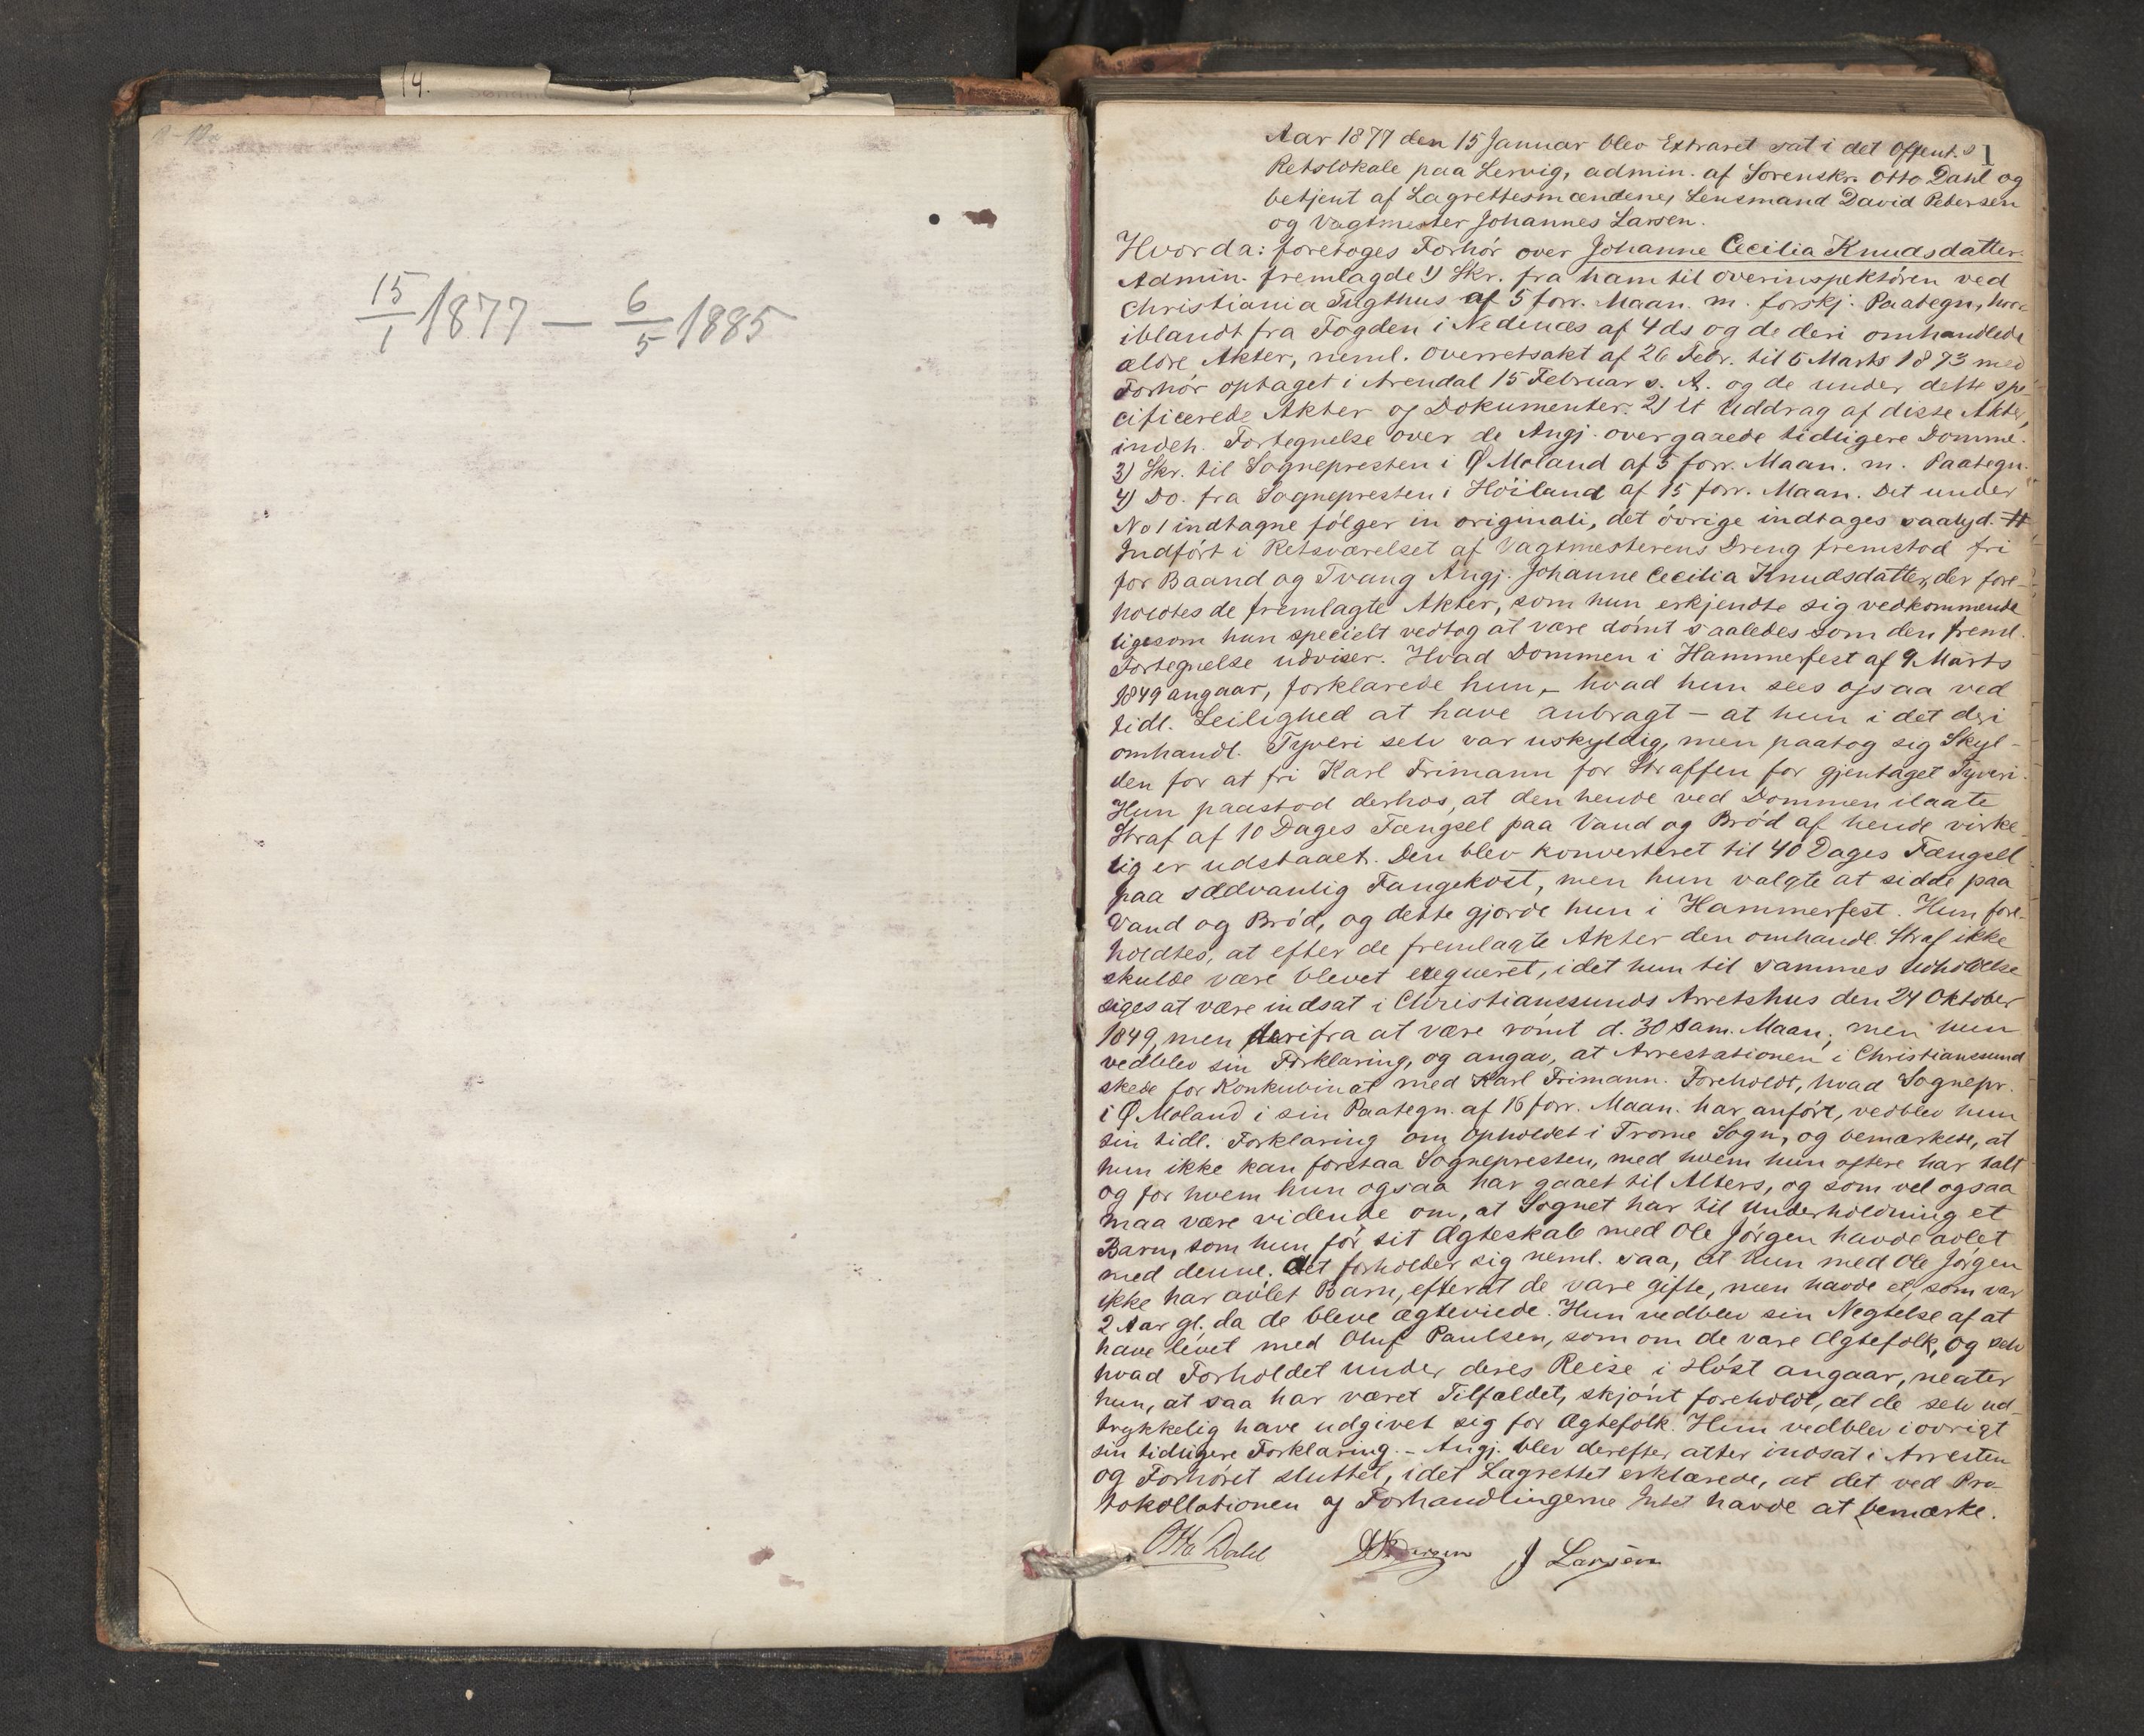 14.
15/1 1877 — 6/5 1885
1
Aar 1877 den 15 Januar blev Extraret sat i det Offentl.
Retslokale paa Lervig, admin. af Sorenskr. Otto Dahl og
betjent af Lagrettesmændene, Lensmand David Petersen
og Vagtmester Johannes Larsen.
Hvorda: foretoges Forhör over Johanne Cecilia Knudsdatter.
Admin. fremlagde 1) Skr. fra ham til Overinspektören ved
Christiania Tugthus af 5 forr. Maan. m. forskj. Paategn, hvor-
iblandt fra Fogden i Nedenæs af 4 ds og de deri omhandlede
ældre Akter, neml. Overretsakt af 26 Febr. til 6 Marts 1873 med
Forhör optaget i Arendal 15 Februar s. A. og de under dette spe-
cificerede Akter og Dokumenter. 2) Et Uddrag af disse Akter,
indeh. Fortegnelse over de Angj. overgaaede tidligere Domme.
3) Skr. til Sognepresten i Ø Moland af 5 forr. Maan. m. Paategn.
4) Do. fra Sognepresten i Höiland af 15 forr. Maan. Det under
No 1 indtagne fölger in originali, det övrige indtages saalyd.
Indfört i Retsværelset af Vagtmesterens Dreng fremstod fri
for Baand og Tvang Angj. Johanne Cecilia Knudsdatter, der fore-
holdtes de fremlagte Akter, som hun erkjendte sig vedkommende
ligesom hun specielt vedtog at være dömt saaledes som den freml.
Fortegnelse udviser. Hvad Dommen i Hammerfest af 9 Marts
1849 angaar, forklarede hun, – hvad hun sees ogsaa ved
tidl. Leilighed at have anbragt – at hun i det deri
omhandl. Tyveri selv var uskyldig, men paatog sig Skyl-
den for at fri Karl Frimann for Straffen for gjentaget Tyveri.
Hun paastod derhos, at den hende ved Dommen ilagte
Straf af 10 Dages Fængsel paa Vand og Bröd af hende virke-
lig er udstaaet. Den blev konverteret til 40 Dages Fængsel
paa sædvanlig Fangekost, men hun valgte at sidde paa
Vand og Bröd, og dette gjorde hun i Hammerfest. Hun fore-
holdtes, at efter de fremlagte Akter den omhandl. Straf ikke
skulde være blevet exequeret, idet hun til sammes Udholdelse
siges at være indsat i Christianssunds Arretshus den 24 Oktober
1849, men derifra at være römt d. 30 sam. Maan; men hun
vedblev sin Forklaring, og angav, at Arrestationen i Christianssund
skede for Konkubinat med Karl Frimann. Foreholdt, hvad Sognepr.
i Ø Moland i sin Paategn. af 16 forr. Maan. har anfört, vedblev hun
sin tidl. Forklaring om Opholdet i Tromö Sogn, og bemærkede, at
hun ikke kan forstaa Sognepresten, med hvem hun oftere har talt
og for hvem hun ogsaa har gaaet til Alters, og som vel ogsaa
maa være vidende om, at Sognet har til Underholdning et
Barn, som hun för sit Ægteskab med Ole Jörgen havde avlet
med denne. Det forholder sig neml. saa, at hun med Ole Jörgen
ikke har avlet Barn, efterat de vare gifte, men havde et, som var
2 Aar gl. da de bleve ægteviede. Hun vedblev sin Negtelse af at
have levet med Oluf Paulsen, som om de vare Ægtefolk, og selv
hvad Forholdet under deres Reise i Höst angaar, negter
hun, at saa har været Tilfældet, skjönt foreholdt, at de selv ud-
trykkelig have udgivet sig for Ægtefolk. Hun vedblev iövrigt
sin tidligere Forklaring. – Angj. blev derefter atter indsat i Arresten
og Forhöret sluttet, idet Lagrettet erklærede, at det ved Pro-
tokollationen af Forhandlingerne Intet havde at bemærke.
Otto Dahl J Larsen